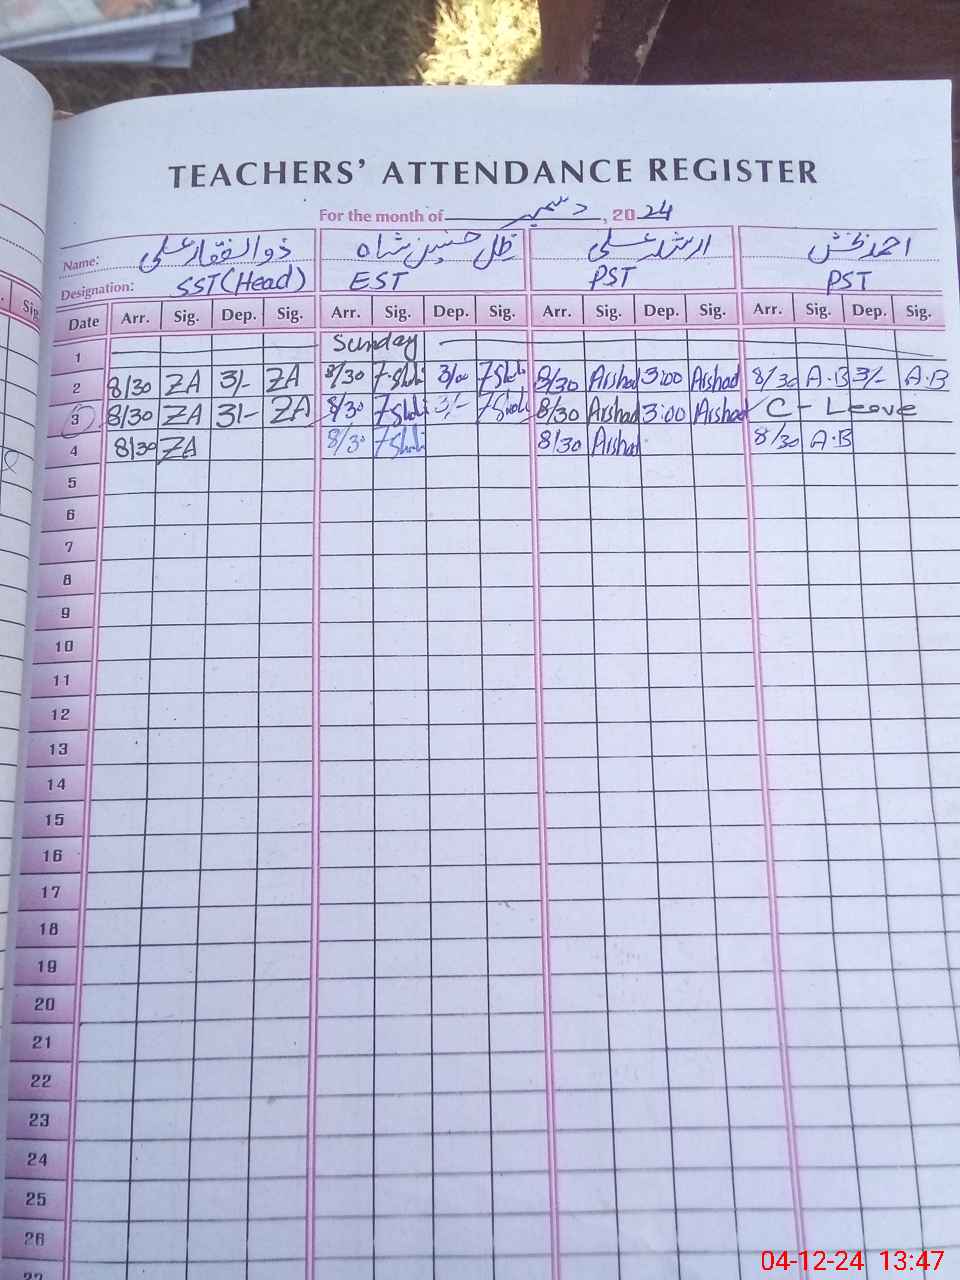 TEACHERS' ATTENDANCE REGISTER
For the month of دسمبر, 2024
Name: ذوالفقار علی ظل حسنین شاہ ارشد علی احمد بخش
Designation: SST (Head) EST PST PST
Date Arr. Sig. Dep. Sig. Arr. Sig. Dep. Sig. Arr. Sig. Dep. Sig. Arr. Sig. Dep. Sig.
1 Sunday
2 8/30 ZA 3/- ZA 8/30 3/00 8/30 Arshad 3:00 Arshad 8/30 A.B 3/- A.B
3 8/30 ZA 3/- ZA 8/30 3/- 8/30 Arshad 3:00 Arshad C - Leave
4 8/30 ZA 8/30 8/30 Arshad 8/30 A.B
5
6
7
8
9
10
11
12
13
14
15
16
17
18
19
20
21
22
23
24
25
26
27
Sig.
04-12-24 13:47